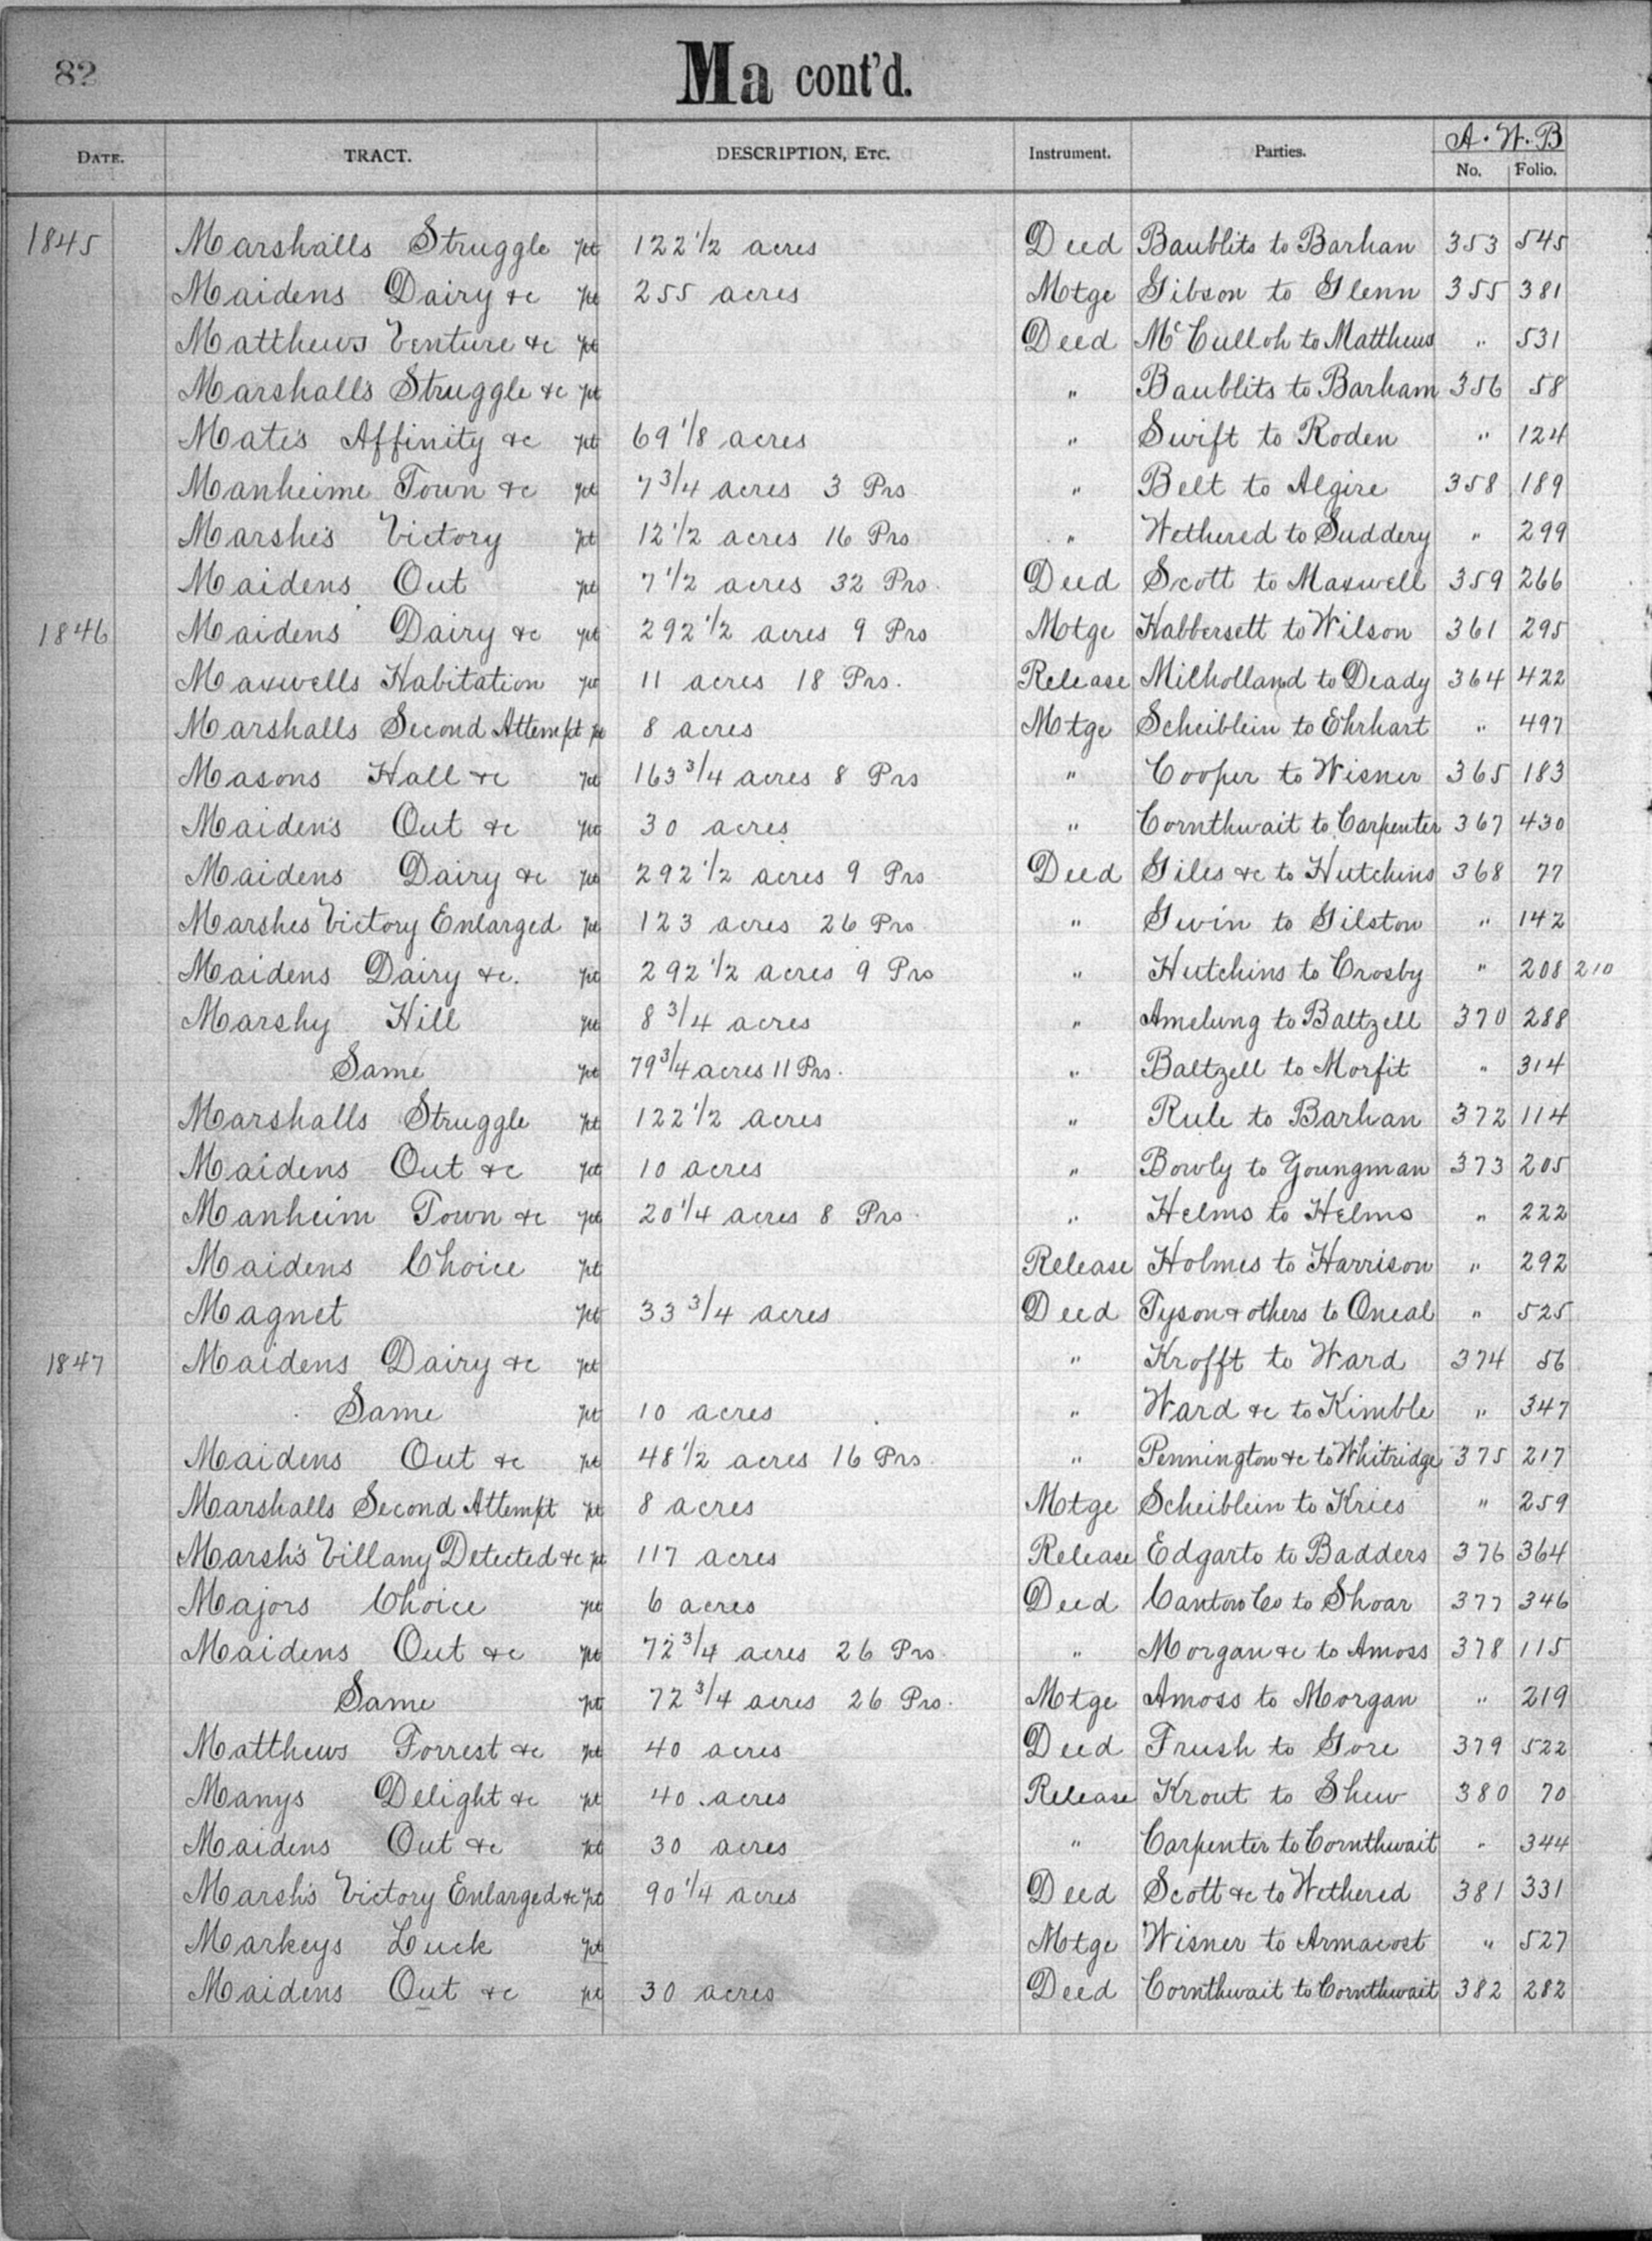 82 Ma cont'd.
A. W. B
DATE. TRACT. DESCRIPTION, ETC. Instrument. Parties. No. Folio.
1845 Marshalls Struggle pt 122 1/2 acres Deed Baublits to Barhan 353 545
Maidens Dairy &c pt 255 acres Mtge Gibson to Glenn 355 381
Matthews Venture &c pt Deed McCulloh to Matthews " 531
Marshall's Struggle &c pt " Baublits to Barham 356 58
Mate's Affinity &c pt 69 1/8 acres " Swift to Roden " 124
Manheime Town &c pt 7 3/4 acres 3 Prs " Belt to Algire 358 189
Marshe's Victory pt 12 1/2 acres 16 Prs " Wethered to Suddery " 299
Maidens Out pt 7 1/2 acres 32 Prs. Deed Scott to Maxwell 359 266
1846 Maidens Dairy &c pt 292 1/2 acres 9 Prs Mtge Habbersett to Wilson 361 295
Maxwells Habitation pt 11 acres 18 Prs. Release Milholland to Deady 364 422
Marshalls Second Attempt pt 8 acres Mtge Scheiblein to Ehrhart " 497
Masons Hall &c pt 163 3/4 acres 8 Prs " Cooper to Wisner 365 183
Maiden's Out &c pt 30 acres " Cornthwait to Carpenter 367 430
Maidens Dairy &c pt 292 1/2 acres 9 Prs Deed Giles &c to Hutchins 368 77
Marshes Victory Enlarged pt 123 acres 26 Prs " Gwin to Gilston " 142
Maidens Dairy &c. pt 292 1/2 acres 9 Prs " Hutchins to Crosby " 208 210
Marshy Hill pt 8 3/4 acres " Amelung to Baltzell 370 288
Same pt 79 3/4 acres 11 Prs. " Baltzell to Morfit " 314
Marshalls Struggle pt 122 1/2 acres " Rule to Barhan 372 114
Maidens Out &c pt 10 acres " Bowly to Youngman 373 205
Manheim Town &c pt 20 1/4 acres 8 Prs. " Helms to Helms " 222
Maidens Choice pt Release Holmes to Harrison " 292
Magnet pt 33 3/4 acres Deed Tyson & others to Oneal " 525
1847 Maidens Dairy &c pt " Krofft to Ward 374 56
Same pt 10 acres " Ward &c to Kimble " 347
Maidens Out &c pt 48 1/2 acres 16 Prs. " Pennington &c to Whitridge 375 217
Marshalls Second Attempt pt 8 acres Mtge Scheiblein to Kries " 259
Marsh's Villany Detected &c pt 117 acres Release Edgarto to Badders 376 364
Majors Choice pt 6 acres Deed Canton Co to Shoar 377 346
Maidens Out &c pt 72 3/4 acres 26 Prs. " Morgan &c to Amoss 378 115
Same pt 72 3/4 acres 26 Prs. Mtge Amoss to Morgan " 219
Matthews Forrest &c pt 40 acres Deed Frush to Gore 379 522
Manys Delight &c pt 40 acres Release Krout to Shew 380 70
Maidens Out &c pt 30 acres " Carpenter to Cornthwait " 344
Marsh's Victory Enlarged &c pt 90 1/4 acres Deed Scott &c to Wethered 381 331
Markeys Luck pt Mtge Wisner to Armacost " 527
Maidens Out &c pt 30 acres Deed Cornthwait to Cornthwait 382 282